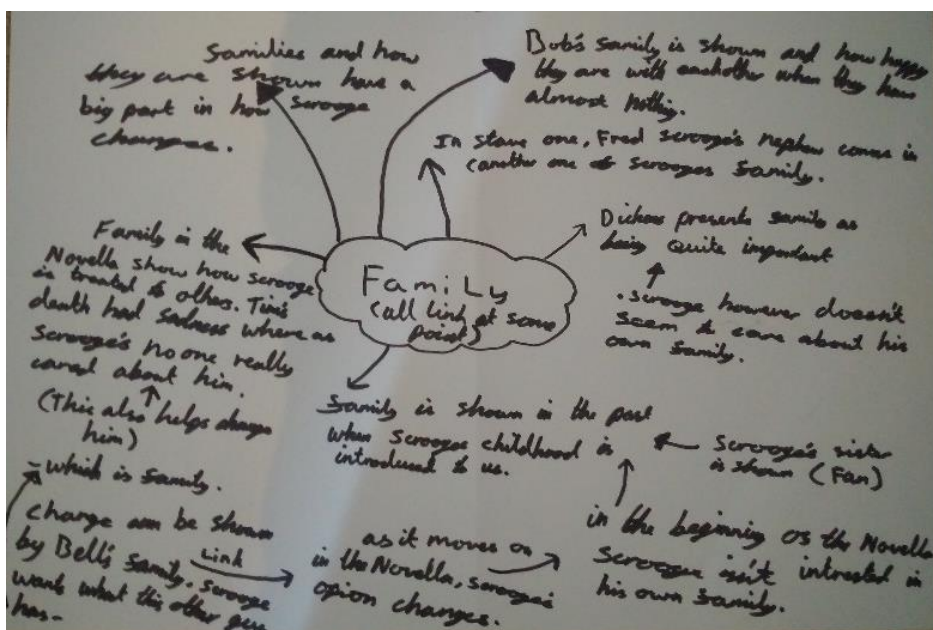 Families and how
they are shown have a
big part in how scrooge
changes.
Bob's family is shown and how happy
they are with eachother when they have
almost nothing.
In stave one, Fred scrooge's nephew comes in
(another one of scrooges family.
Dickens presents family as
being quite important
. scrooge however doesn't
seem to care about his
own family.
Family
(all link at some
point)
Family in the
Novella show how scrooge
is treated to others. Tim's
death had sadness where as
scrooge's no one really
cared about him.
(This also helps change
him)
family is shown in the past
when scrooges childhood is
introduced to us.
scrooge's sister
is shown (Fan)
in the beginning of the Novella
scrooge isn't intrested in
his own family.
as it moves on
in the Novella, scrooge's
opion changes.
Link
- which is family.
change can be shown
by Bell's family, scrooge
wants what this other guy
has-